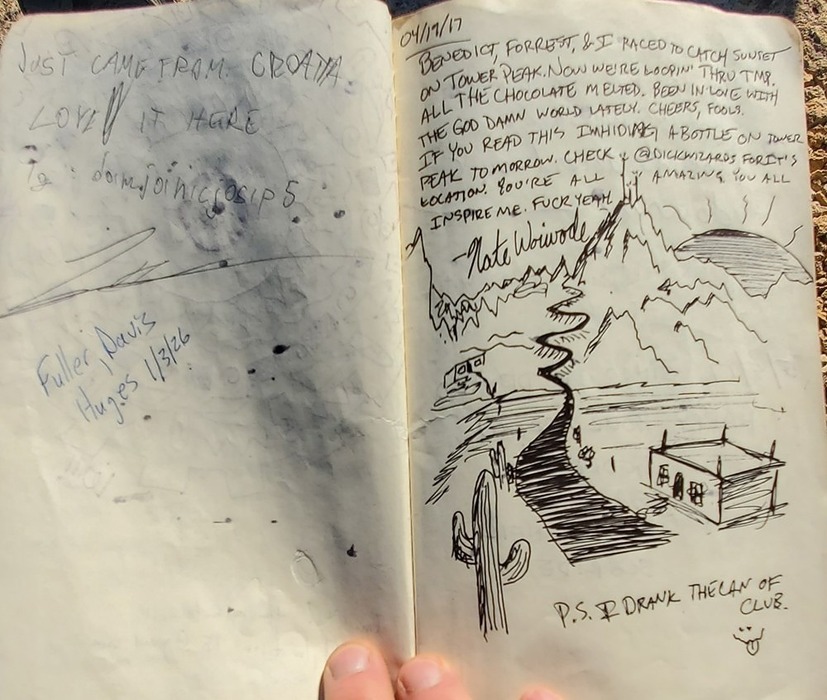 JUST CAME FROM CROATIA
LOVE IT HERE
Ig: domjoinicjosip5
Fuller, Davis
Huges 1/3/26
04/19/17
BENEDICT, FORREST, & I RACED TO CATCH SUNSET
ON TOWER PEAK. NOW WE'RE LOOPIN' THRU TMP.
ALL THE CHOCOLATE MELTED. BEEN IN LOVE WITH
THE GOD DAMN WORLD LATELY. CHEERS, FOOLS.
IF YOU READ THIS IM HIDING A BOTTLE ON TOWER
PEAK TOMORROW. CHECK @DICKWIZARDS FOR IT'S
LOCATION. YOU'RE ALL AMAZING. YOU ALL
INSPIRE ME. FUCK YEAH
-Nate Woiwode
P.S. I DRANK THE CAN OF
CLUB.